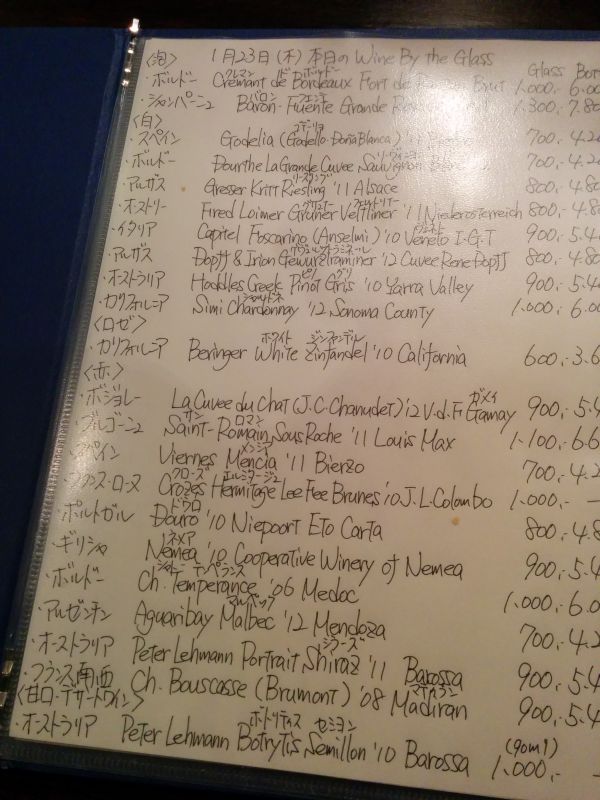 〈泡〉 1月23日(木) 本日の Wine By the Glass
Glass Bott
クレマン ド ボルドー
・ボルドー Crémant de Bordeaux Fort de Brut 1.000,- 6.00
バロン フェンテ
・シャンパーニュ Baron-Fuente Grande 1.300,- 7.80
〈白〉
ゴデーリョ
・スペイン Godelia (Godello・Doña Blanca) '11 700,- 4.20
・ボルドー Dourthe La Grande Cuvee Sauvignon 700,- 4.20
リースリング
・アルザス Gresser Kritt Riesling '11 Alsace 800,- 4.80
グリューナー フェルトリナー
・オーストリー Fred Loimer Grüner Veltliner '11 Niederosterreich 800,- 4.80
ヴェネト
・イタリア Capitel Foscarino (Anselmi) '10 Veneto I.G.T 900,- 5.40
ゲヴュルツトラミネール
・アルザス Dopff & Irion Gewurztraminer '12 Cuvee Rene Dopff 800,- 4.80
ピノ グリ
・オーストラリア Hoddles Creek Pinot Gris '10 Yarra Valley 900,- 5.40
シャルドネ
・カリフォルニア Simi Chardonnay '12 Sonoma County 1.000,- 6.00
〈ロゼ〉
ホワイト ジンファンデル
・カリフォルニア Beringer White Zinfandel '10 California 600,- 3.60
〈赤〉
ガメイ
・ボジョレー La Cuvee du Chat (J.C. Chanudet) '12 V.d.F Gamay 900,- 5.40
サン ロマン
・ブルゴーニュ Saint-Romain Sous Roche '11 Louis Max 1.100,- 6.60
メンシア
・スペイン Viernes Mencia '11 Bierzo 700,- 4.20
クローズ エルミタージュ
・フランス・ローヌ Crozes Hermitage Lee Fee Brunes '10 J.L.Colombo 1.000,- —
ドウロ
・ポルトガル Douro '10 Niepoort Eto Carta 800,- 4.80
ネメア
・ギリシャ Nemea '10 Cooperative Winery of Nemea 900,- 5.40
シャトー テペランス
・ボルドー Ch. Temperance '06 Medoc 1.000,- 6.00
マルベック
・アルゼンチン Aguaribay Malbec '12 Mendoza 700,- 4.20
シラーズ
・オーストラリア Peter Lehmann Portrait Shiraz '11 Barossa 900,- 5.40
マディラン
・フランス南西 Ch. Bouscasse (Brumont) '08 Madiran 900,- 5.40
〈甘口・デザートワイン〉
ボトリティス セミヨン (90ml)
・オーストラリア Peter Lehmann Botrytis Semillon '10 Barossa 1.000,- —